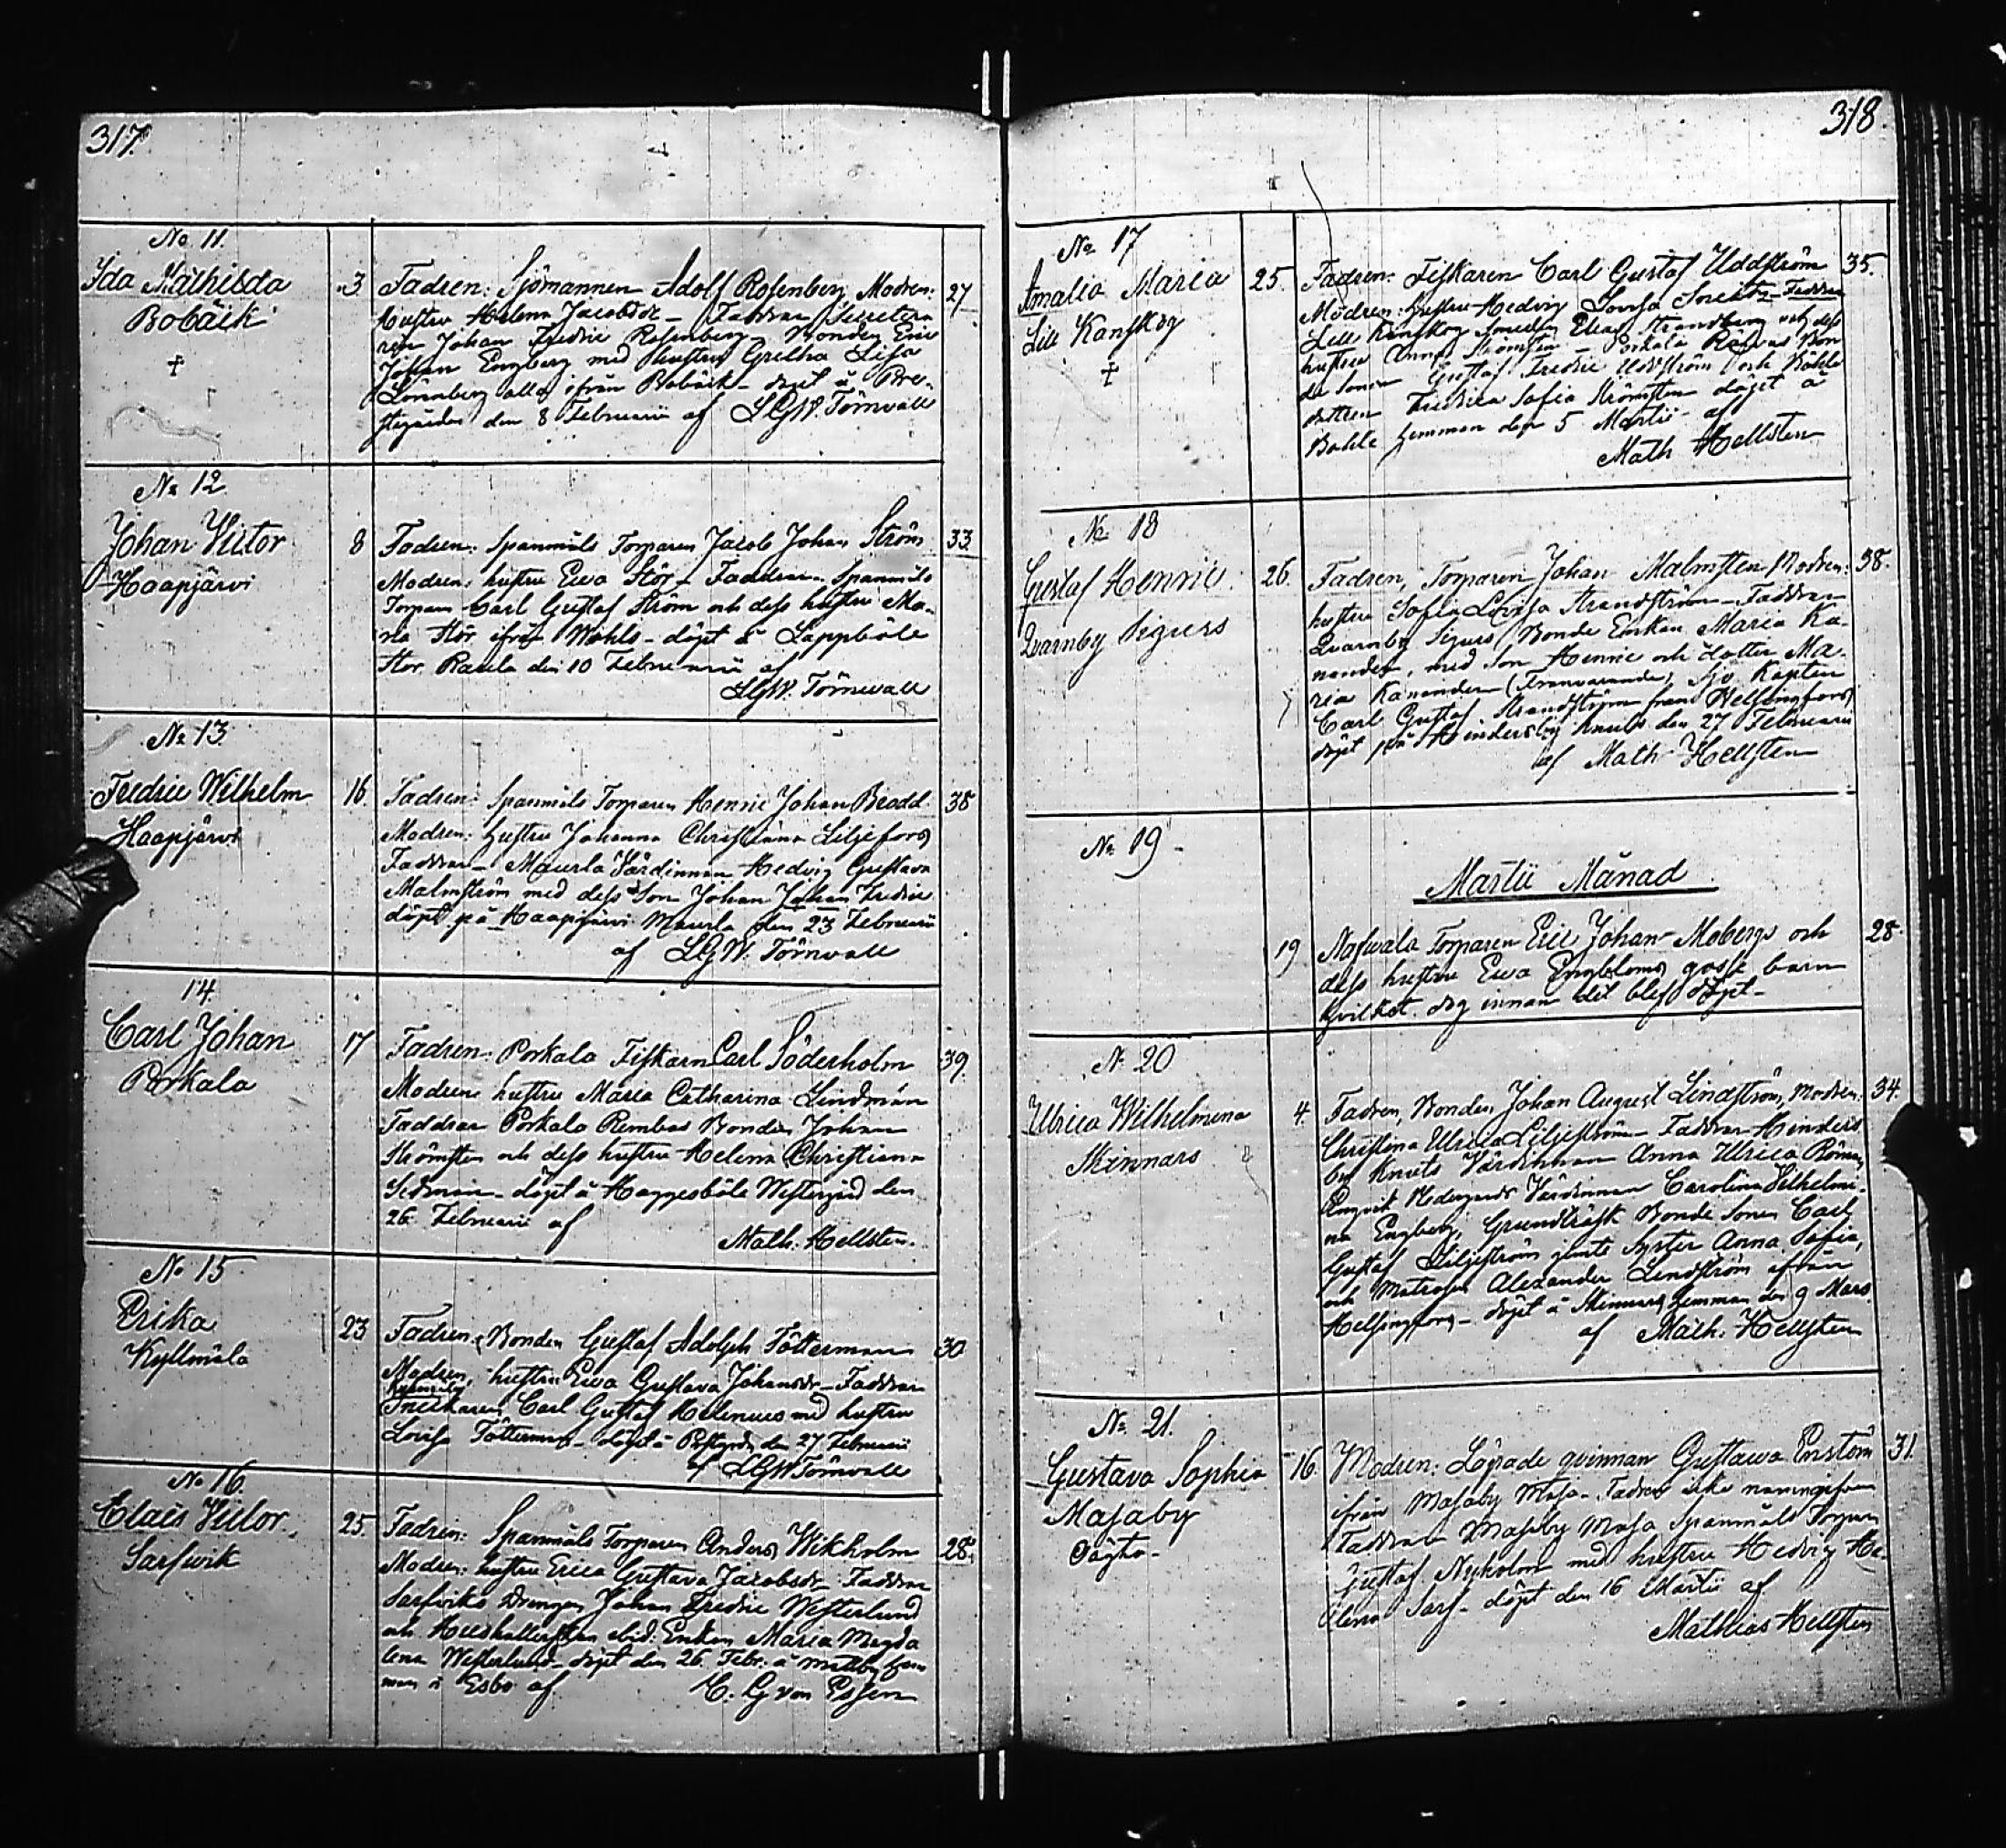 317.
No 11.
Ida Mathilda
Bobäck
3
Fadren: Sjömannen Adolf Rosenberg, Modren:
27
hustru Helena Jacobsdr – Faddrar
Johan Fredric Rosenberg – Bonden Eric
Johan Engberg med hustru Gretha Lisa
Lönnberg alla ifrån Bobäck – döpt å Pre-
stgården den 8 Februarii af LGW. Törnvall
No 12
Johan Victor
Haapjärvi
8
Fadren: Spanmåls Torparen Jacob Johan Ström
33
Modren: hustru Ewa Stör – Faddrar Spanmåls
Torparn Carl Gustaf Ström och dess hustru Ma-
ria Stör ifrån Wohls – döpt å Lappböle
Stor Raula den 10 Februarii af
LGW. Törnvall
No 13.
Fredric Wilhelm
Haapjärvi
16.
Fadren: Spanmåls Torparen Henric Johan Bradd
38
Modren: hustru Johanna Christiana Liljefors
Faddrar – Maurla Värdinnan Hedvig Gustava
Malmström med dess Son Johan Johan Fredric
döpt på Haapjärvi Maurla den 23 Februarii
af LGW. Törnvall
14.
Carl Johan
Porkala
17
Fadren: Porkala Fiskarn Carl Söderholm
39.
Modren hustru Maria Catharina Lindman
Faddrar Porkala Rembas Bonden Johan
Strömsten och dess hustru Helena Christiana
Sedman – döpt å Haggesböle Westergård den
26 Februarii af
Math. Hellsten.
No 15
Erika
Kyllmäla
23
Fadren: Bonden Gustaf Adolph Fötterman
30
Modren, hustru Ewa Gustava Johansdr – Faddrar
Snickaren Carl Gustaf Helenius med hustru
Lovisa Fötterman – döpt å Prestgrdn den 27 Februarii
af LGW Törnvall
No 16.
Claës Victor.
Sarfwik
25
Fadren: Spanmåls Torparen Anders Wikholm
28.
Modren: hustru Erica Gustava Jacobsdr – Faddrar
Sarfwiks Drengen Johan Fredric Westerlund
och ibid: Enkan Maria Magda
lena Westerlund – döpt den 26 Febr. å Mattby hem
man i Esbo af C. G von Essen
318.
No 17
Amalia Maria
Lill Kanskog
25.
Fadren: Fiskaren Carl Gustaf Uddström
35.
Modren: hustru Hedvig Lovisa – Faddrar
Lill Kanskog Smeden Elias Strandberg och dess
hustru Anna Strömsten – Porkala Bon
de Sonen Gustaf Fredric Uddström och
dottren Fredrica Sofia Strömsten döpt å
Bohls hemman den 5 Martii af
Math Hellsten
No 18
Gustaf Henric.
Qvarnby Sigurs
26.
Fadren, Torparen Johan Malmsten Modren:
38.
hustru Sofia Lovisa Strandström – Faddrar
Qvarnby Sigurs Bonde Enkan Maria Ka-
nander, med Son Henric och dotter Ma-
ria Kanander (Frånvarande) Sjö Kapten
Carl Gustaf Strandström från Helsingfors
döpt på Hindersby Knuts den 27 Februarii
af Math Hellsten
No 19 –
Martii Månad
19
Nafwala Torparen Eric Johan Mobergs och
28
dess hustru Ewa Engbloms gosse barn
hvilket dog innan det blef döpt –
No 20
Ulrica Wilhelmina
Skinnars
4.
Fadren, Bonden Johan August Lindström, Modren:
34.
Christina Ulrica Liljeström Faddrar Hinders
by Knuts Värdinnan Anna Ulrica
Värdinnan Carolina Wilhelmi-
na Engberg, Grundträsk Bonde Sonen Carl
Gustaf Liljeström jemte Syster Anna Sofia,
och Matrosen Alexander Lindström ifrån
Helsingfors – döpt å Skinnars hemman den 9 Mars
af Math. Hellsten
No 21.
Gustava Sophia
Masaby
Oägta –
16.
Modren: Lägrade qvinnan Gustawa Enström
31.
ifrån Masaby Masa – Fadren icke namngifven
Faddrar Masaby Masa Spanmåls Torparn
Gustaf Nyholm med hustru Hedvig He-
lena Sarf – döpt den 16 Martii af
Mathias Hellsten